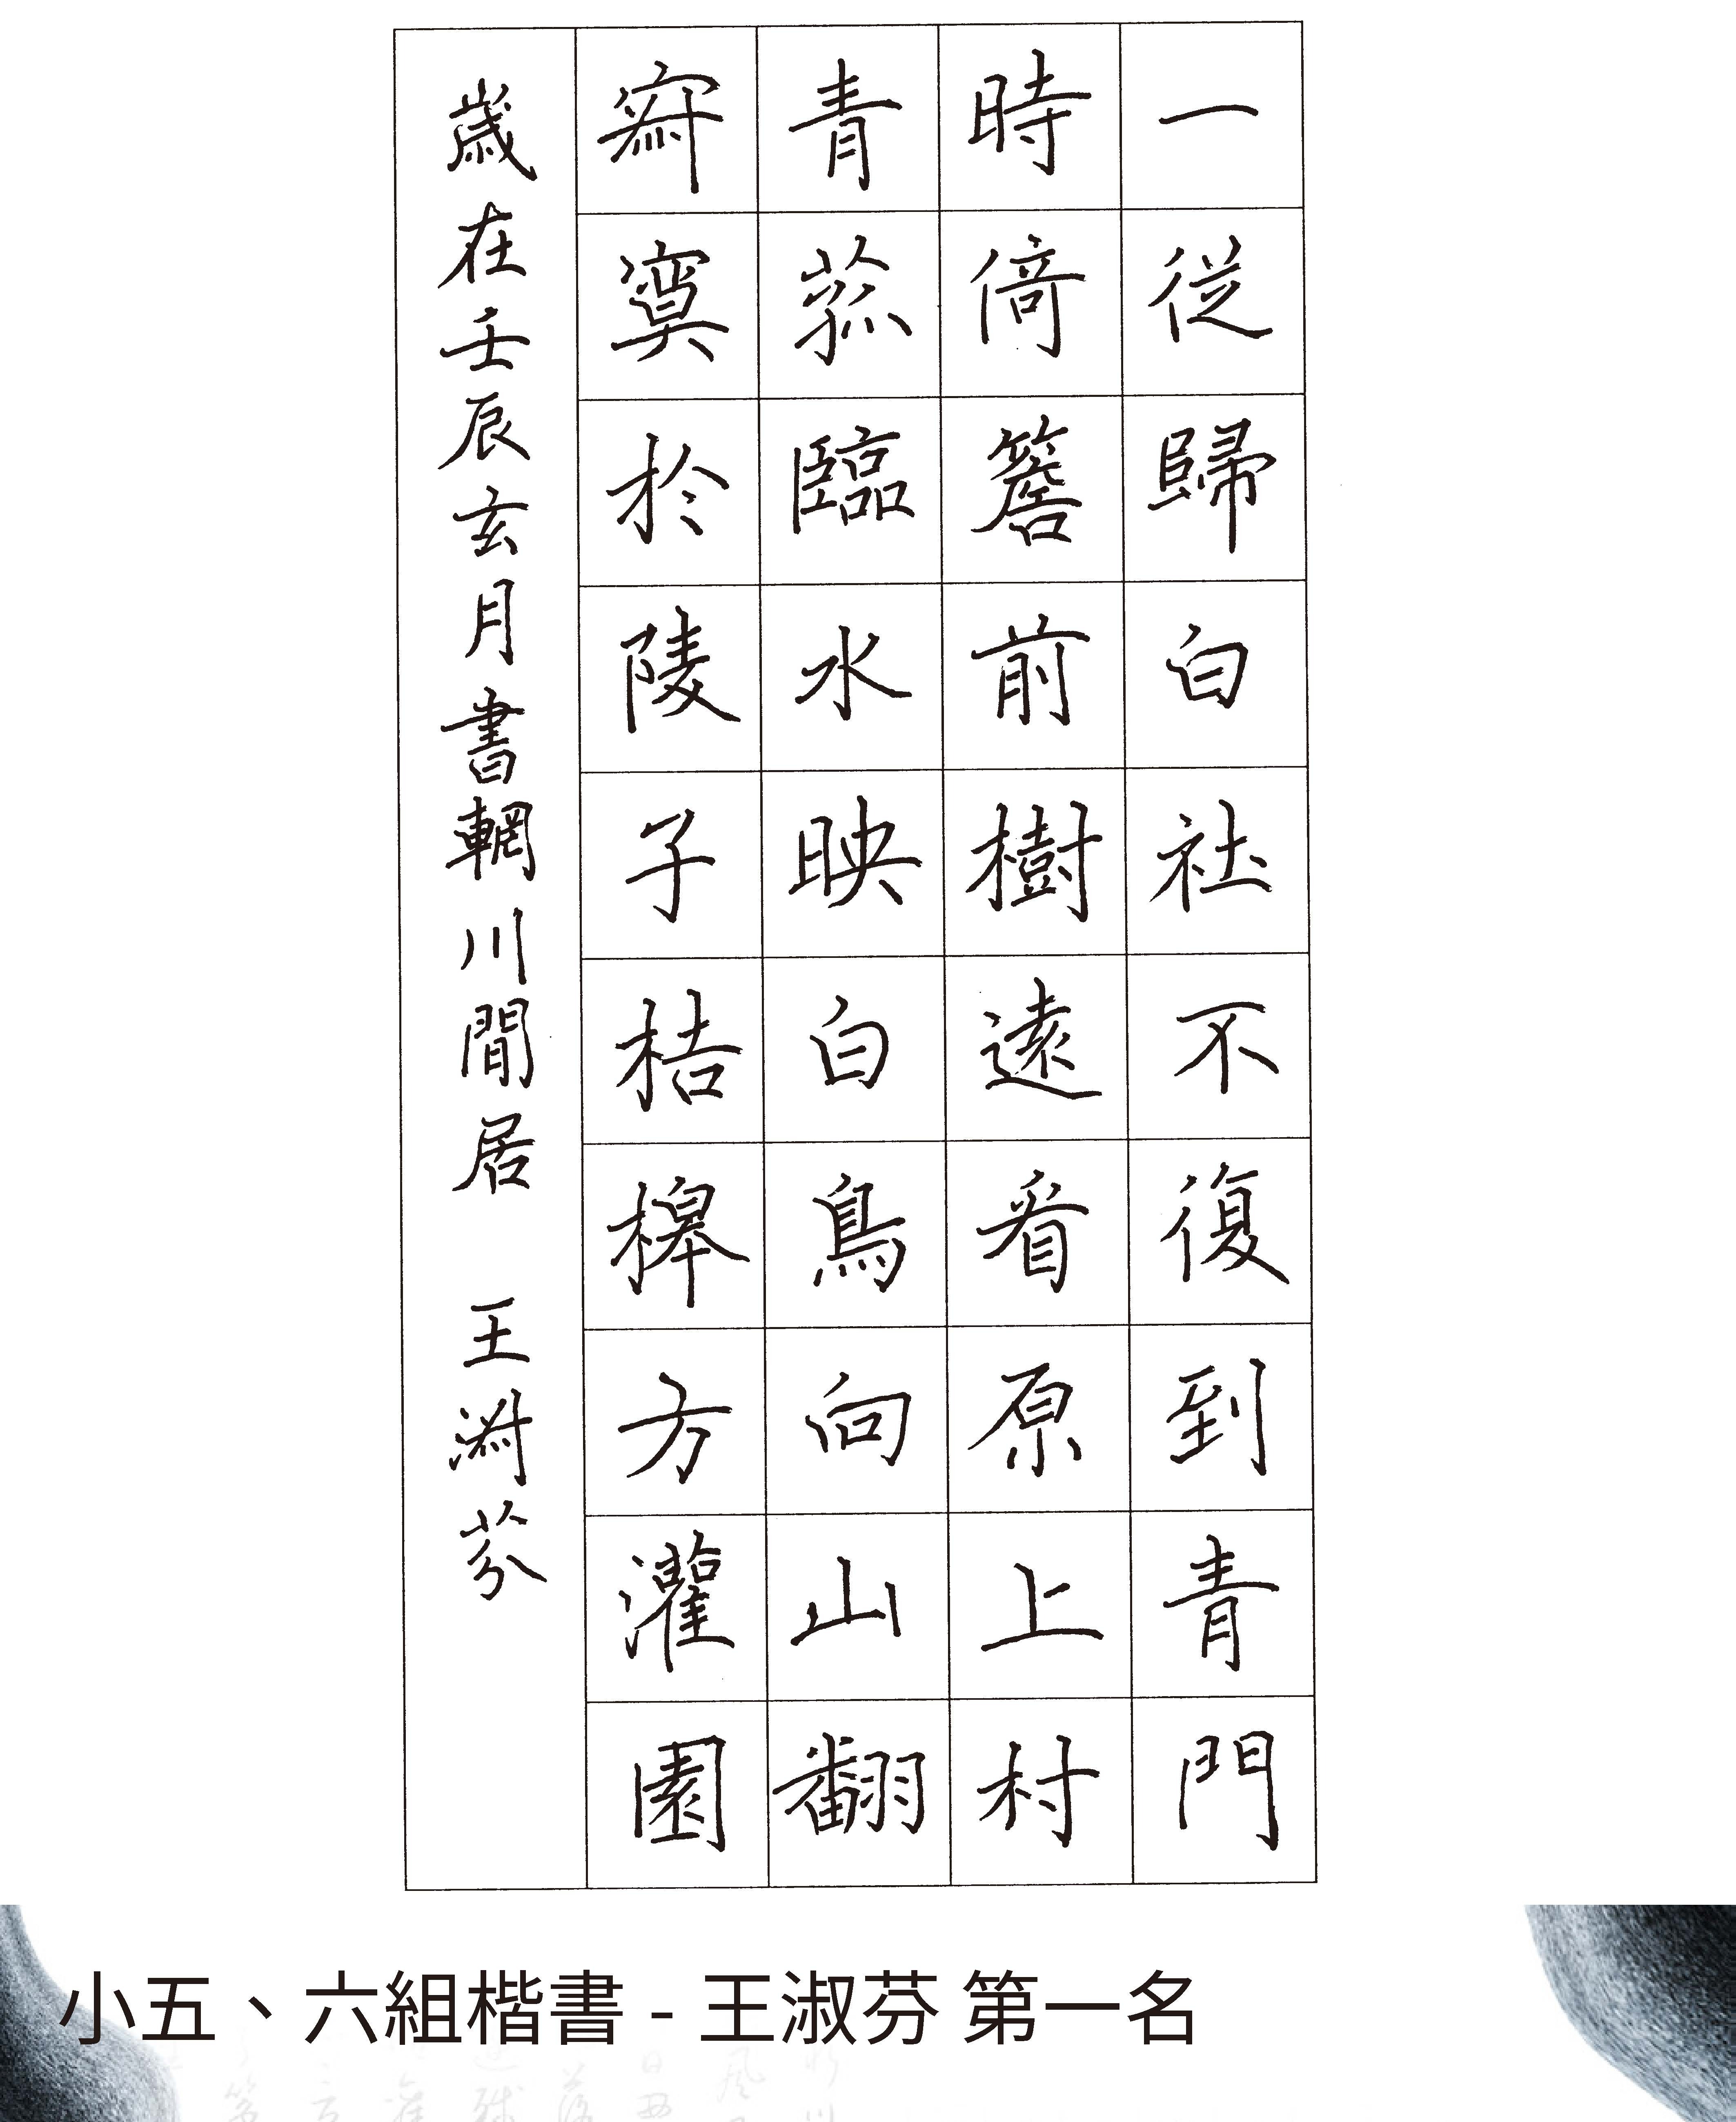 一從歸白社不復到青門
時倚簷前樹遠看原上村
青菰臨水映白鳥向山翻
寂寞於陵子桔槔方灌園
歲在壬辰玄月書輞川閒居 王淑芬
小五、六組楷書 - 王淑芬 第一名